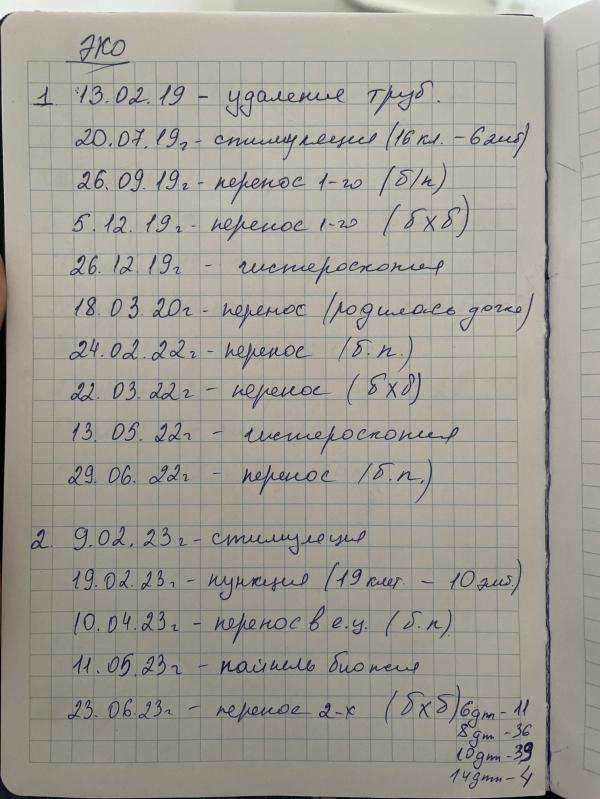 ЭКО
1. 13.02.19 – удаление труб.
20.07.19г – стимуляция (16 кл. – 6 эмб)
26.09.19г – перенос 1-го (б/п)
5.12.19г – перенос 1-го (бхб)
26.12.19г – гистероскопия
18.03.20г – перенос (родилась дочка)
24.02.22г – перенос (б.п.)
22.03.22г – перенос (бхб)
13.05.22г – гистероскопия
29.06.22г – перенос (б.п.)
2. 9.02.23г – стимуляция
19.02.23г – пункция (19 клет. – 10 эмб.)
10.04.23г – перенос в е.ц. (б.п)
11.05.23г – пайпель биопсия
23.06.23г – перенос 2-х (бхб) 6дпп – 11
8дпп – 36
10дпп – 39
14дпп – 4